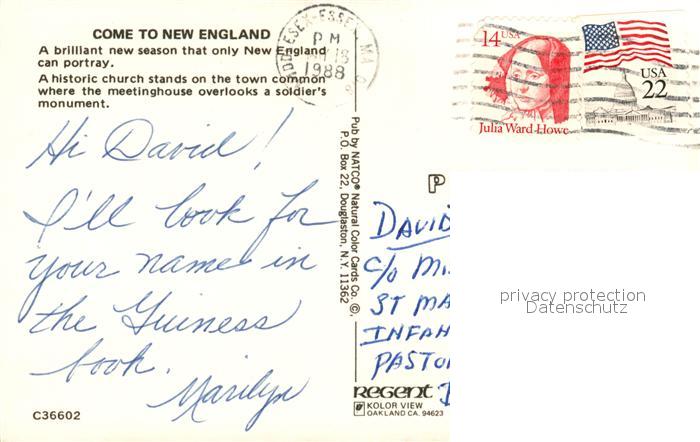 COME TO NEW ENGLAND
A brilliant new season that only New England
can portray.
A historic church stands on the town common
where the meetinghouse overlooks a soldier's
monument.
PM
1988
14 USA
Julia Ward Howe
USA
22
Hi David!
I'll look for
your name in
the Guiness
book.
Marilyn
C36602
Pub by NATCO® Natural Color Cards Co. ©,
P.O. Box 22, Douglaston, N.Y. 11362
P
DAVID
C/O MI
ST MA
INFAN
PASTO
REGENT
KOLOR VIEW
OAKLAND CA. 94623
privacy protection
Datenschutz